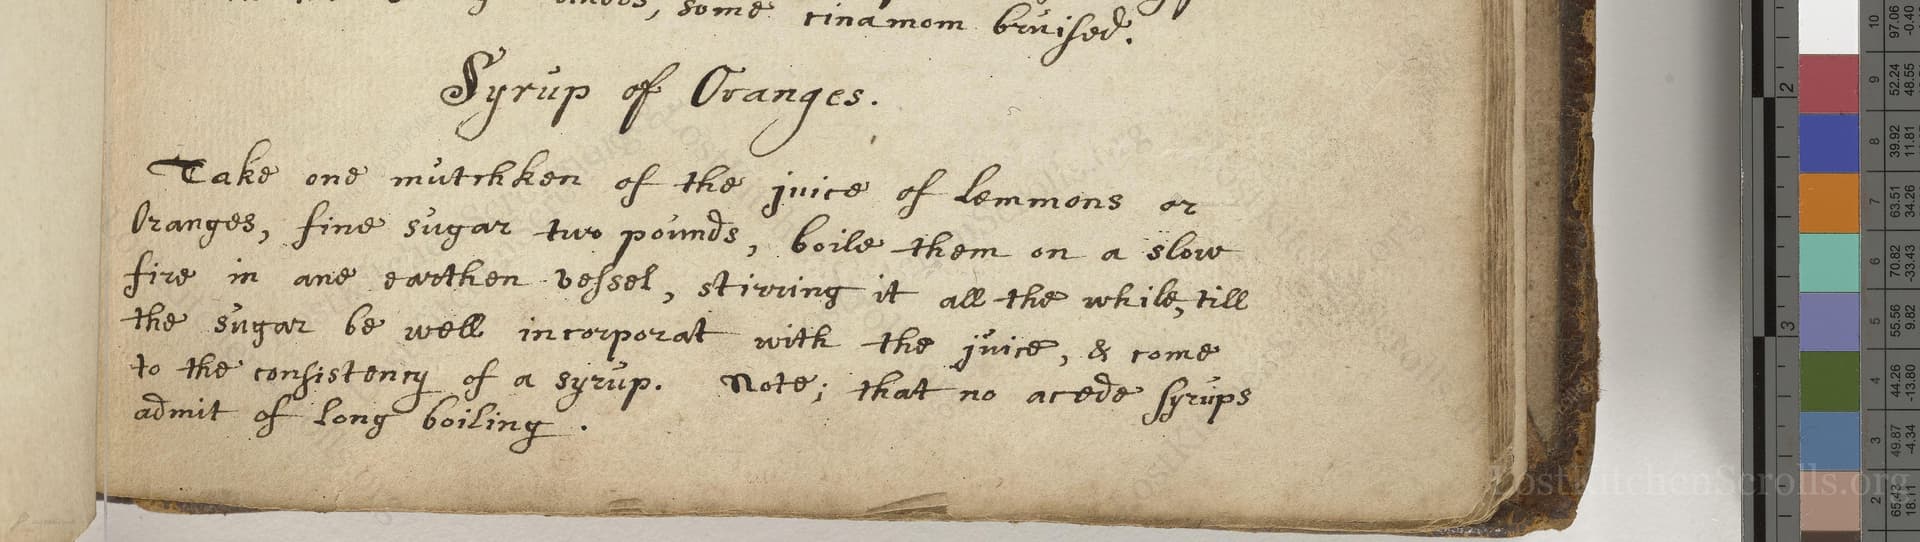 some cinamom bruised.
Syrup of Oranges.
Take one mutchken of the juice of lemmons or
Oranges, fine sugar two pounds, boile them on a slow
fire in ane earthen vessel, stirring it all the while, till
the sugar be well incorporat with the juice, & come
to the consistency of a syrup. Note; that no acede syrups
admit of long boiling.
LostKitchenScrolls.org
2
3
10 97.06 -0.40
9 52.24 48.55
8 39.92 11.81
7 63.51 34.26
6 70.82 -33.43
5 55.56 9.82
4 44.26 -13.80
3 49.87 -4.34
2 65.43 18.11